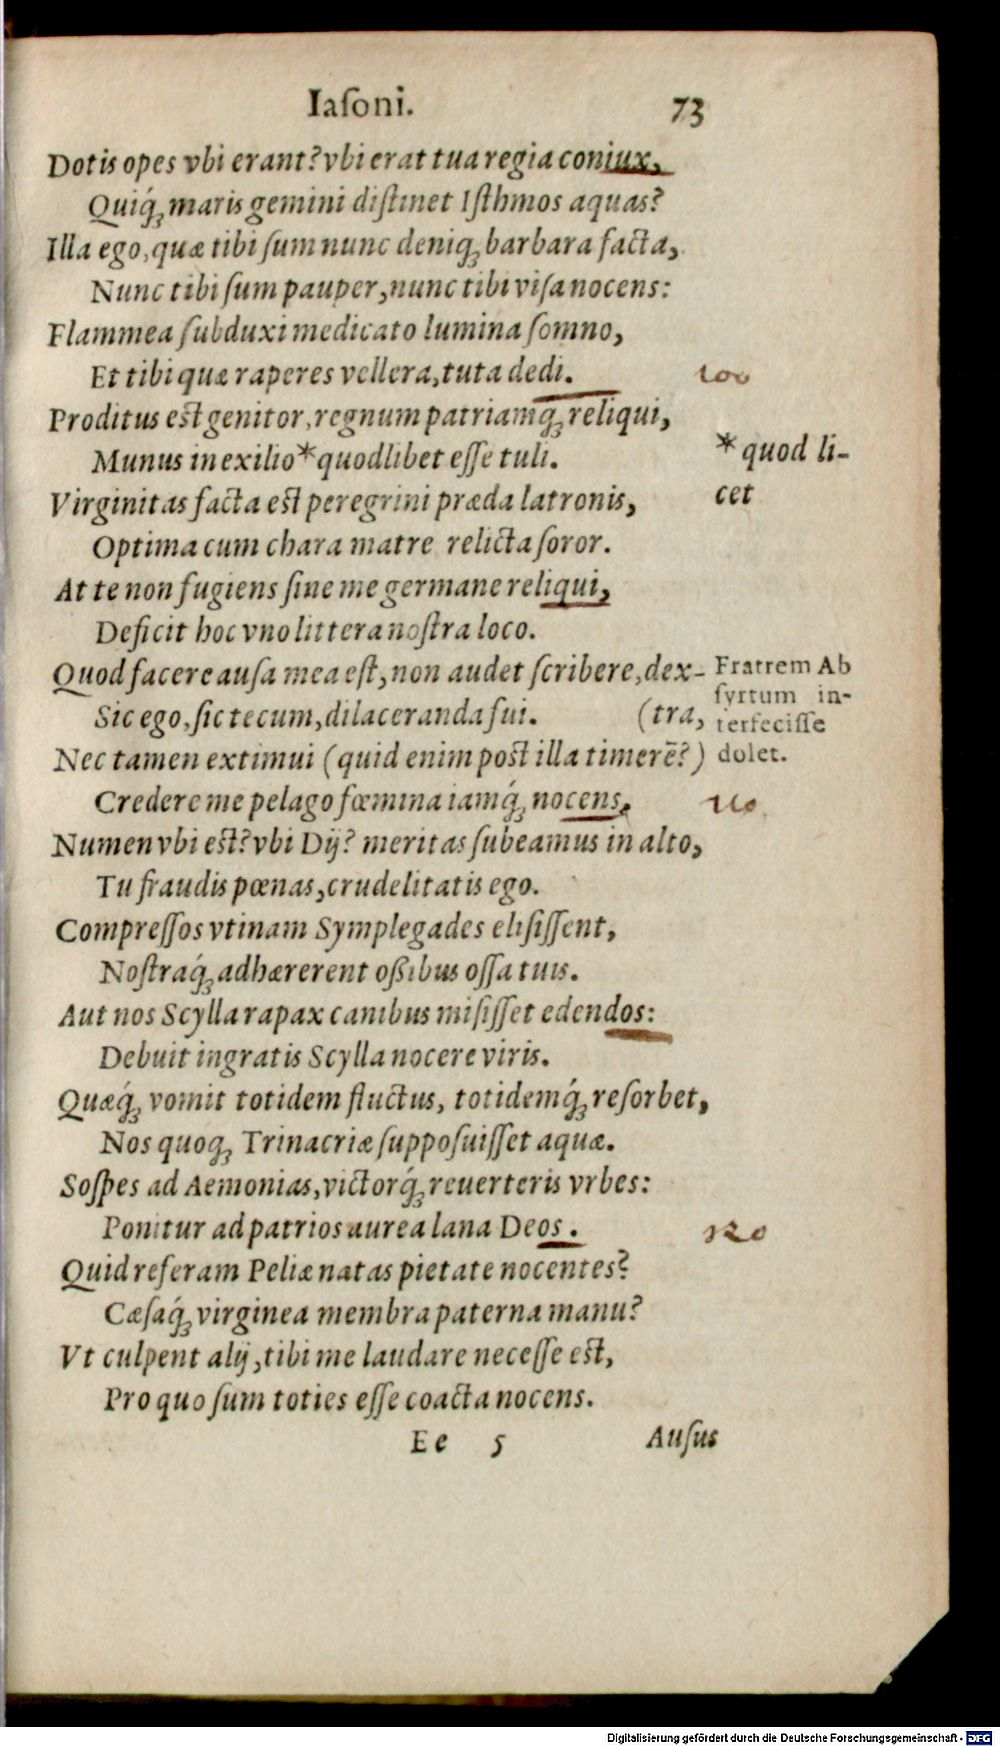 Iaſoni. 73
Dotis opes vbi erant? vbi erat tua regia coniux,
Quiq́ꝫ maris gemini diſtinet Iſthmos aquas?
Illa ego, quæ tibi ſum nunc deniqꝫ barbara facta,
Nunc tibi ſum pauper, nunc tibi viſa nocens:
Flammea ſubduxi medicato lumina ſomno,
Et tibi quæ raperes vellera, tuta dedi. 100
Proditus eſt genitor, regnum patriamq́ꝫ reliqui,
Munus in exilio * quodlibet eſſe tuli.
* quod li-
cet
Virginitas facta eſt peregrini præda latronis,
Optima cum chara matre relicta ſoror.
At te non fugiens ſine me germane reliqui,
Deficit hoc vno littera noſtra loco.
Quod facere auſa mea eſt, non audet ſcribere, dex-
(tra,
Sic ego, ſic tecum, dilaceranda fui.
Fratrem Ab
ſyrtum in-
terfeciſſe
dolet.
Nec tamen extimui (quid enim poſt illa timerē?)
Credere me pelago fœmina iamq́ꝫ nocens. 110
Numen vbi eſt? vbi Dij? meritas ſubeamus in alto,
Tu fraudis pœnas, crudelitatis ego.
Compreſſos vtinam Symplegades eliſiſſent,
Noſtraq́ꝫ adhærerent oßibus oſſa tuis.
Aut nos Scylla rapax canibus miſiſſet edendos:
Debuit ingratis Scylla nocere viris.
Quæq́ꝫ vomit totidem fluctus, totidemq́ꝫ reſorbet,
Nos quoqꝫ Trinacriæ ſuppoſuiſſet aquæ.
Soſpes ad Aemonias, victorq́ꝫ reuerteris vrbes:
Ponitur ad patrios aurea lana Deos. 120
Quid referam Peliæ natas pietate nocentes?
Cæſaq́ꝫ virginea membra paterna manu?
Vt culpent alij, tibi me laudare neceſſe eſt,
Pro quo ſum toties eſſe coacta nocens.
Ee 5 Auſus
Digitalisierung gefördert durch die Deutsche Forschungsgemeinschaft - DFG